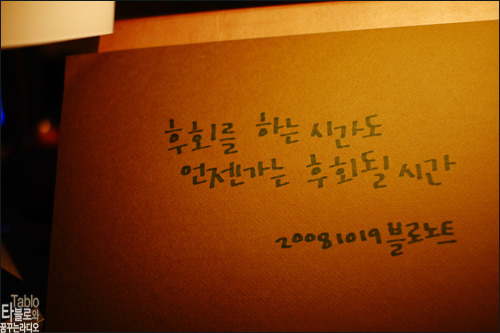 후회를 하는 시간도
언젠가는 후회될 시간
20081019 블로노트
Tablo
타블로와
꿈꾸는라디오